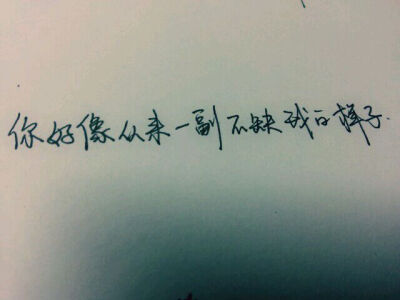 你好像从来一副不缺我的样子.